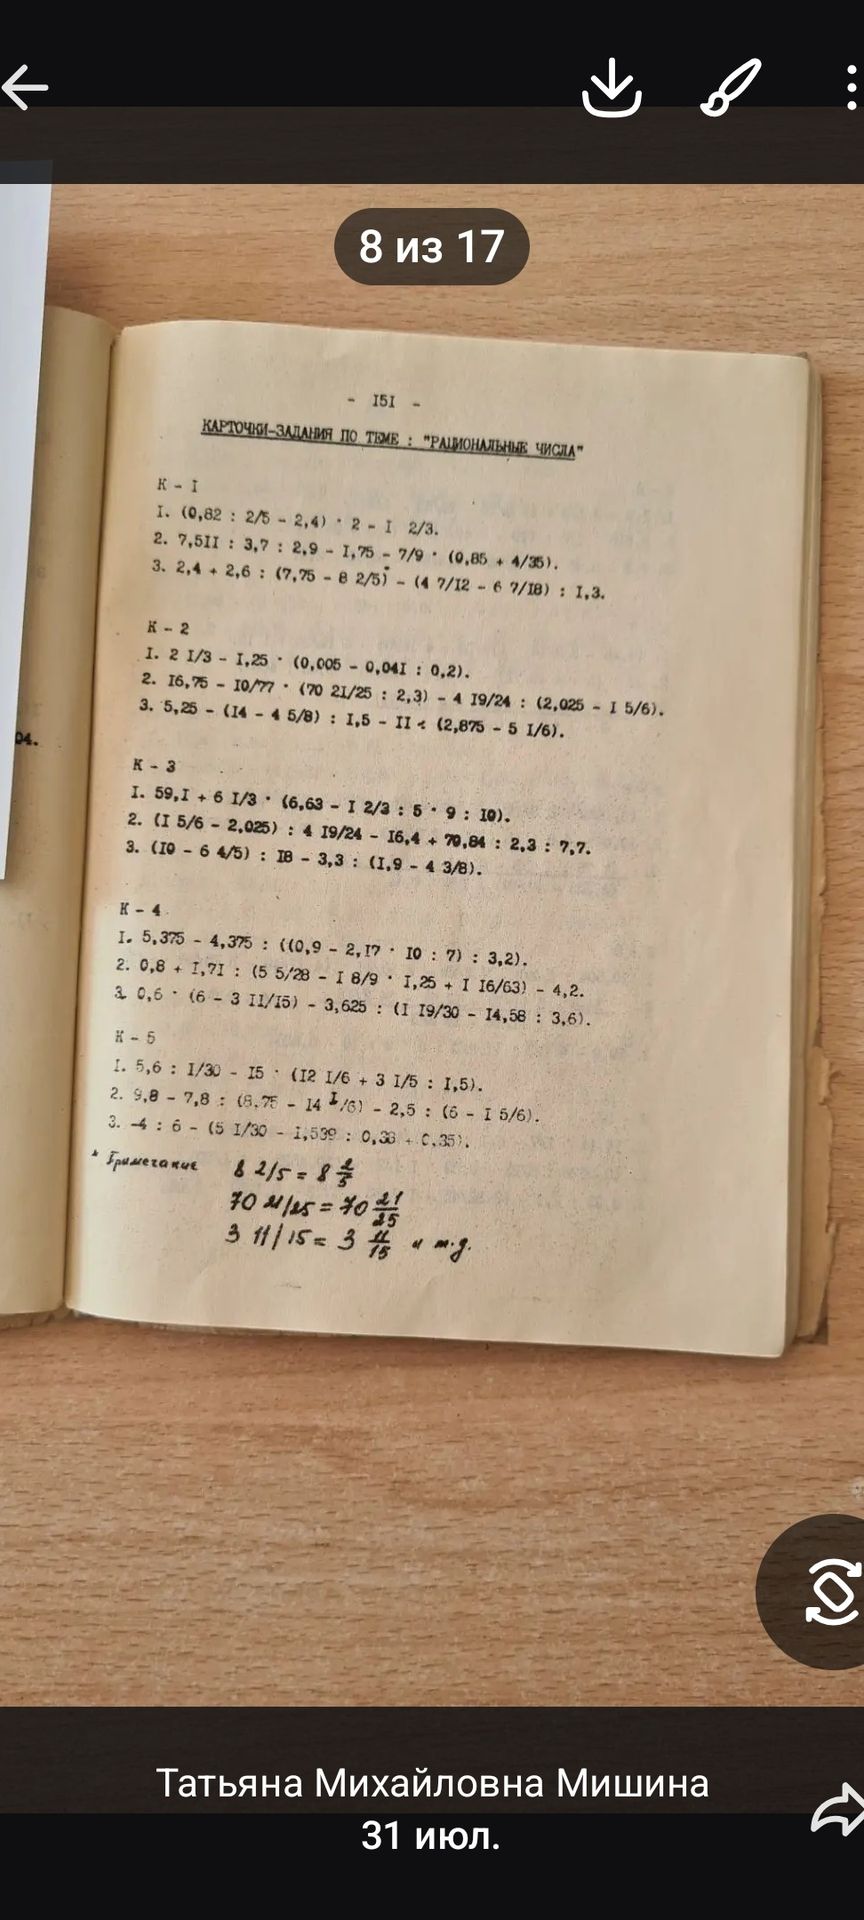 8 из 17
- I5I -
КАРТОЧКИ-ЗАДАНИЯ ПО ТЕМЕ : "РАЦИОНАЛЬНЫЕ ЧИСЛА"
К - I
I. (0,82 : 2/5 - 2,4) · 2 - I 2/3.
2. 7,5II : 3,7 : 2,9 - I,75 - 7/9 · (0,85 + 4/35).
3. 2,4 + 2,6 : (7,75 - 8 2/5)* - (4 7/I2 - 6 7/I8) : I,3.
К - 2
I. 2 I/3 - I,25 · (0,005 - 0,04I : 0,2).
2. I6,75 - I0/77 · (70 2I/25 : 2,3) - 4 I9/24 : (2,025 - I 5/6).
3. 5,25 - (I4 - 4 5/8) : I,5 - II : (2,875 - 5 I/6).
04.
К - 3
I. 59,I + 6 I/3 · (6,63 - I 2/3 : 5 · 9 : I0).
2. (I 5/6 - 2,025) : 4 I9/24 - I6,4 + 70,84 : 2,3 : 7,7.
3. (I0 - 6 4/5) : I8 - 3,3 : (I,9 - 4 3/8).
К - 4
I. 5,375 - 4,375 : ((0,9 - 2,I7 · I0 : 7) : 3,2).
2. 0,8 + I,7I : (5 5/28 - I 8/9 · I,25 + I I6/63) - 4,2.
3. 0,6 · (6 - 3 II/I5) - 3,625 : (I I9/30 - I4,58 : 3,6).
К - 5
I. 5,6 : I/30 - I5 · (I2 I/6 + 3 I/5 : I,5).
2. 9,8 - 7,8 : (8,75 - I4 I/6) - 2,5 : (6 - I 5/6).
3. -4 : 6 - (5 I/30 - I,539 : 0,38 + 0,35).
* Примечание 8 2/5 = 8 2/5
70 21/25 = 70 21/25
3 11/15 = 3 11/15 и т.д.
Татьяна Михайловна Мишина
31 июл.